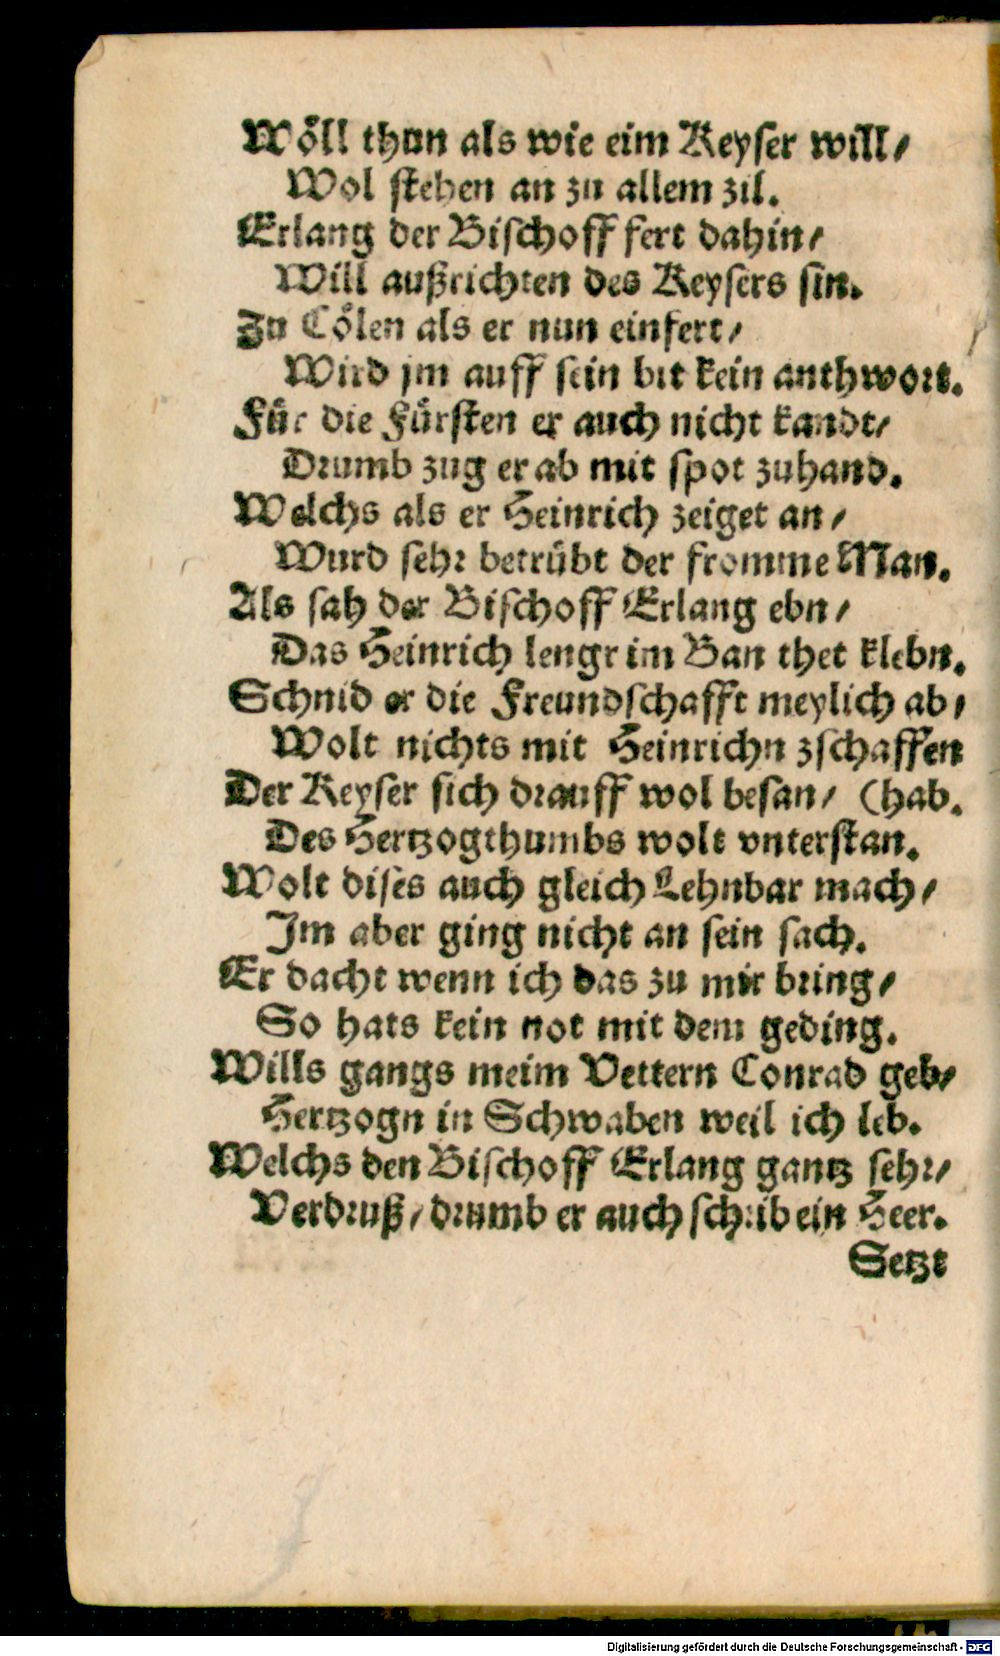 Wöll thun als wie eim Keyser will/
Wol stehen an zu allem zil.
Erlang der Bischoff fert dahin/
Will außrichten des Keysers sin.
Zu Cölen als er nun einfert/
Wird jm auff sein bit kein anthwort.
Für die Fürsten er auch nicht kandt/
Drumb zug er ab mit spot zuhand.
Welchs als er Heinrich zeiget an/
Wurd sehr betrübt der fromme Man.
Als sah der Bischoff Erlang ebn/
Das Heinrich lengr im Ban thet klebn.
Schnid er die Freundschafft meylich ab/
Wolt nichts mit Heinrichn zschaffen
Der Keyser sich drauff wol besan/ (hab.
Des Hertzogthumbs wolt vnterstan.
Wolt dises auch gleich Lehnbar mach/
Im aber ging nicht an sein sach.
Er dacht wenn ich das zu mir bring/
So hats kein not mit dem geding.
Wills gangs meim Vettern Conrad geb/
Hertzogn in Schwaben weil ich leb.
Welchs den Bischoff Erlang gantz sehr/
Verdruß/ drumb er auch schrib ein Heer.
Setzt
Digitalisierung gefördert durch die Deutsche Forschungsgemeinschaft - DFG